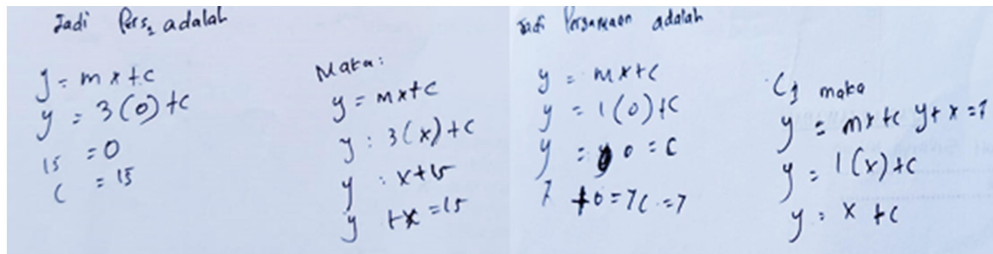 Jadi Pers, adalah
y = mx+c
y = 3(0)+c
15 = 0
c = 15
Maka:
y = mx+c
y : 3(x)+c
y : x+15
y +x =15
Jadi Persamaan adalah
y = mx+c
y = 1(0)+c
y = 0 = c
7 +0=7c=7
C1 maka
y = mx+c y+x=7
y = 1(x)+c
y = x +c